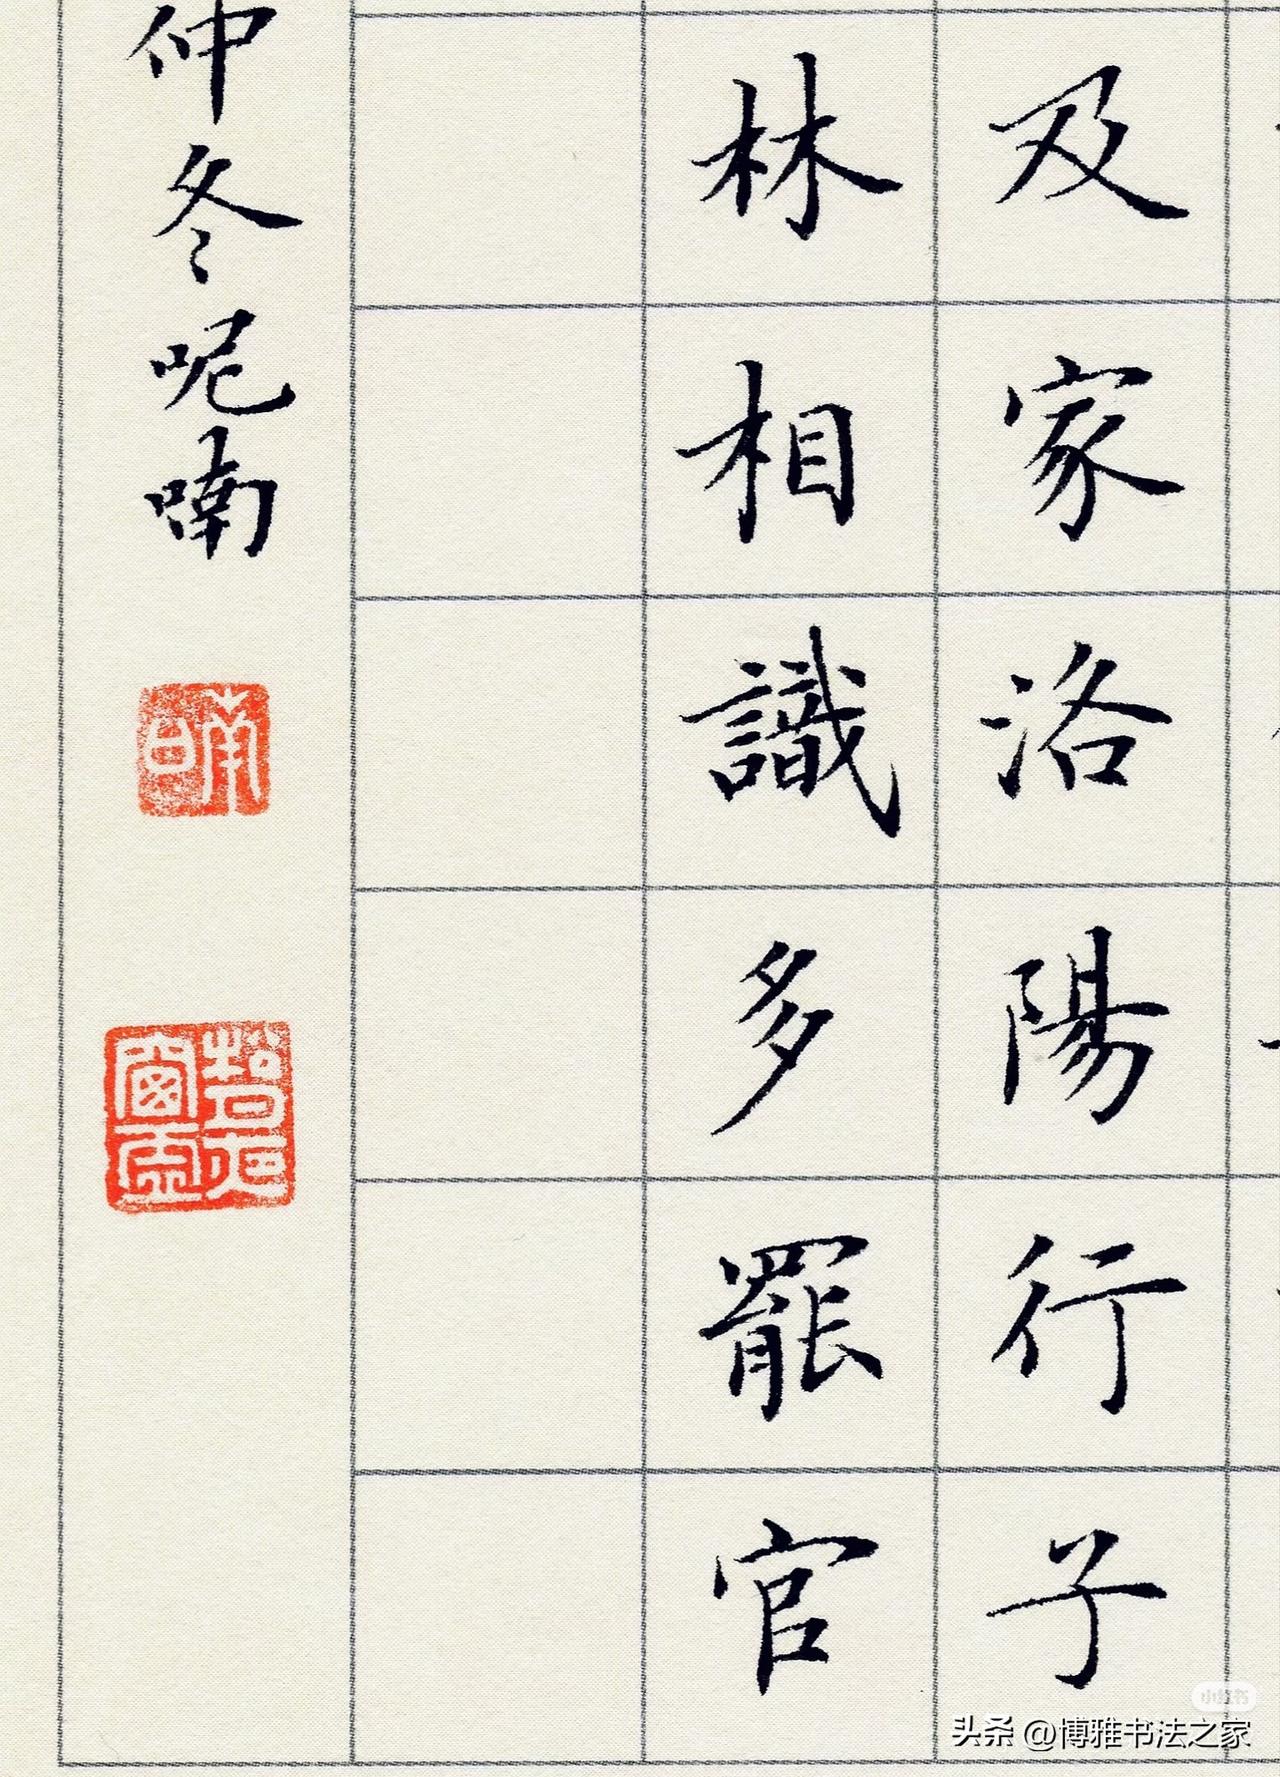 及家洛陽行子
林相識多罷官
仲冬呢喃
小红书
头条 @博雅书法之家